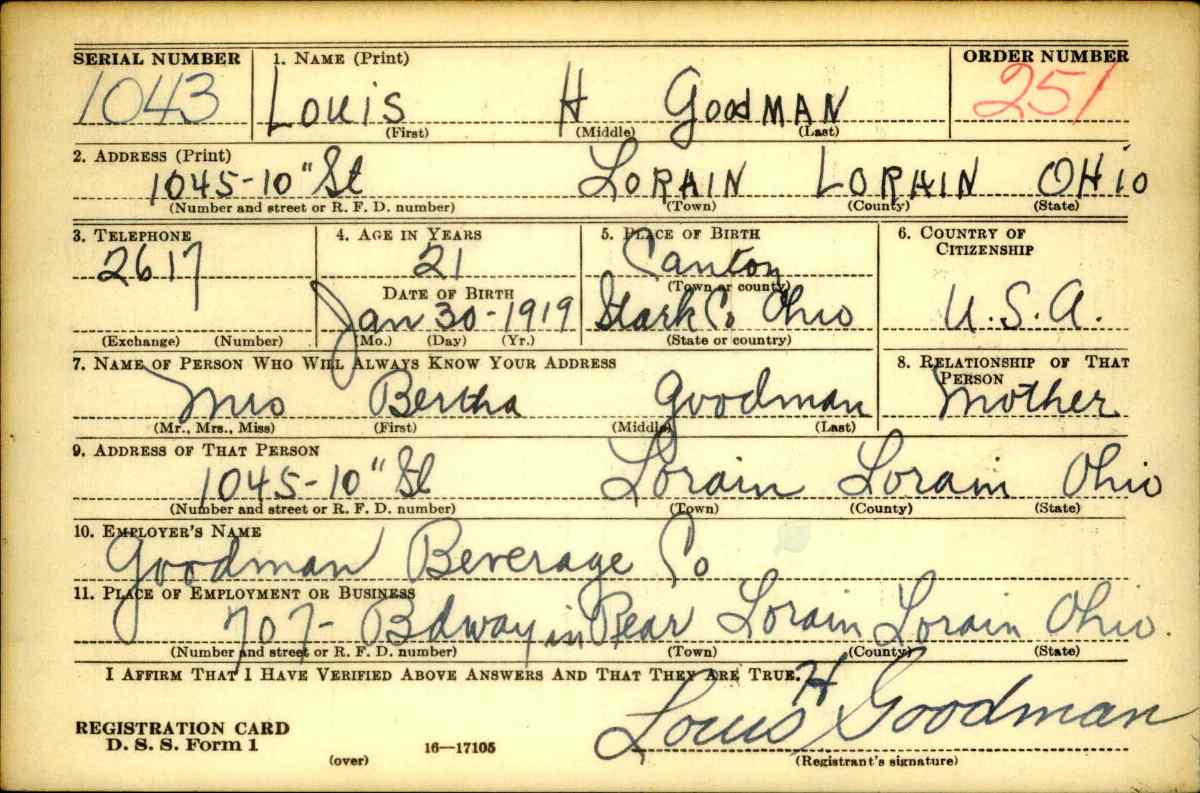 SERIAL NUMBER 1. NAME (Print) ORDER NUMBER
1043 LOUIS H GOODMAN 251
(First) (Middle) (Last)
2. ADDRESS (Print)
1045-10" St LORAIN LORAIN OHIO
(Number and street or R. F. D. number) (Town) (County) (State)
3. TELEPHONE 4. AGE IN YEARS 5. PLACE OF BIRTH 6. COUNTRY OF CITIZENSHIP
2617 21 Canton
DATE OF BIRTH (Town or county)
Jan 30-1919 Stark Co Ohio U.S.A.
(Exchange) (Number) (Mo.) (Day) (Yr.) (State or country)
7. NAME OF PERSON WHO WILL ALWAYS KNOW YOUR ADDRESS 8. RELATIONSHIP OF THAT PERSON
Mrs Bertha Goodman Mother
(Mr., Mrs., Miss) (First) (Middle) (Last)
9. ADDRESS OF THAT PERSON
1045-10" St Lorain Lorain Ohio
(Number and street or R. F. D. number) (Town) (County) (State)
10. EMPLOYER'S NAME
Goodman Beverage Co
11. PLACE OF EMPLOYMENT OR BUSINESS
707- Bdway in Rear Lorain Lorain Ohio.
(Number and street or R. F. D. number) (Town) (County) (State)
I AFFIRM THAT I HAVE VERIFIED ABOVE ANSWERS AND THAT THEY ARE TRUE.
Louis H Goodman
REGISTRATION CARD
D. S. S. Form 1 16—17105
(over) (Registrant's signature)